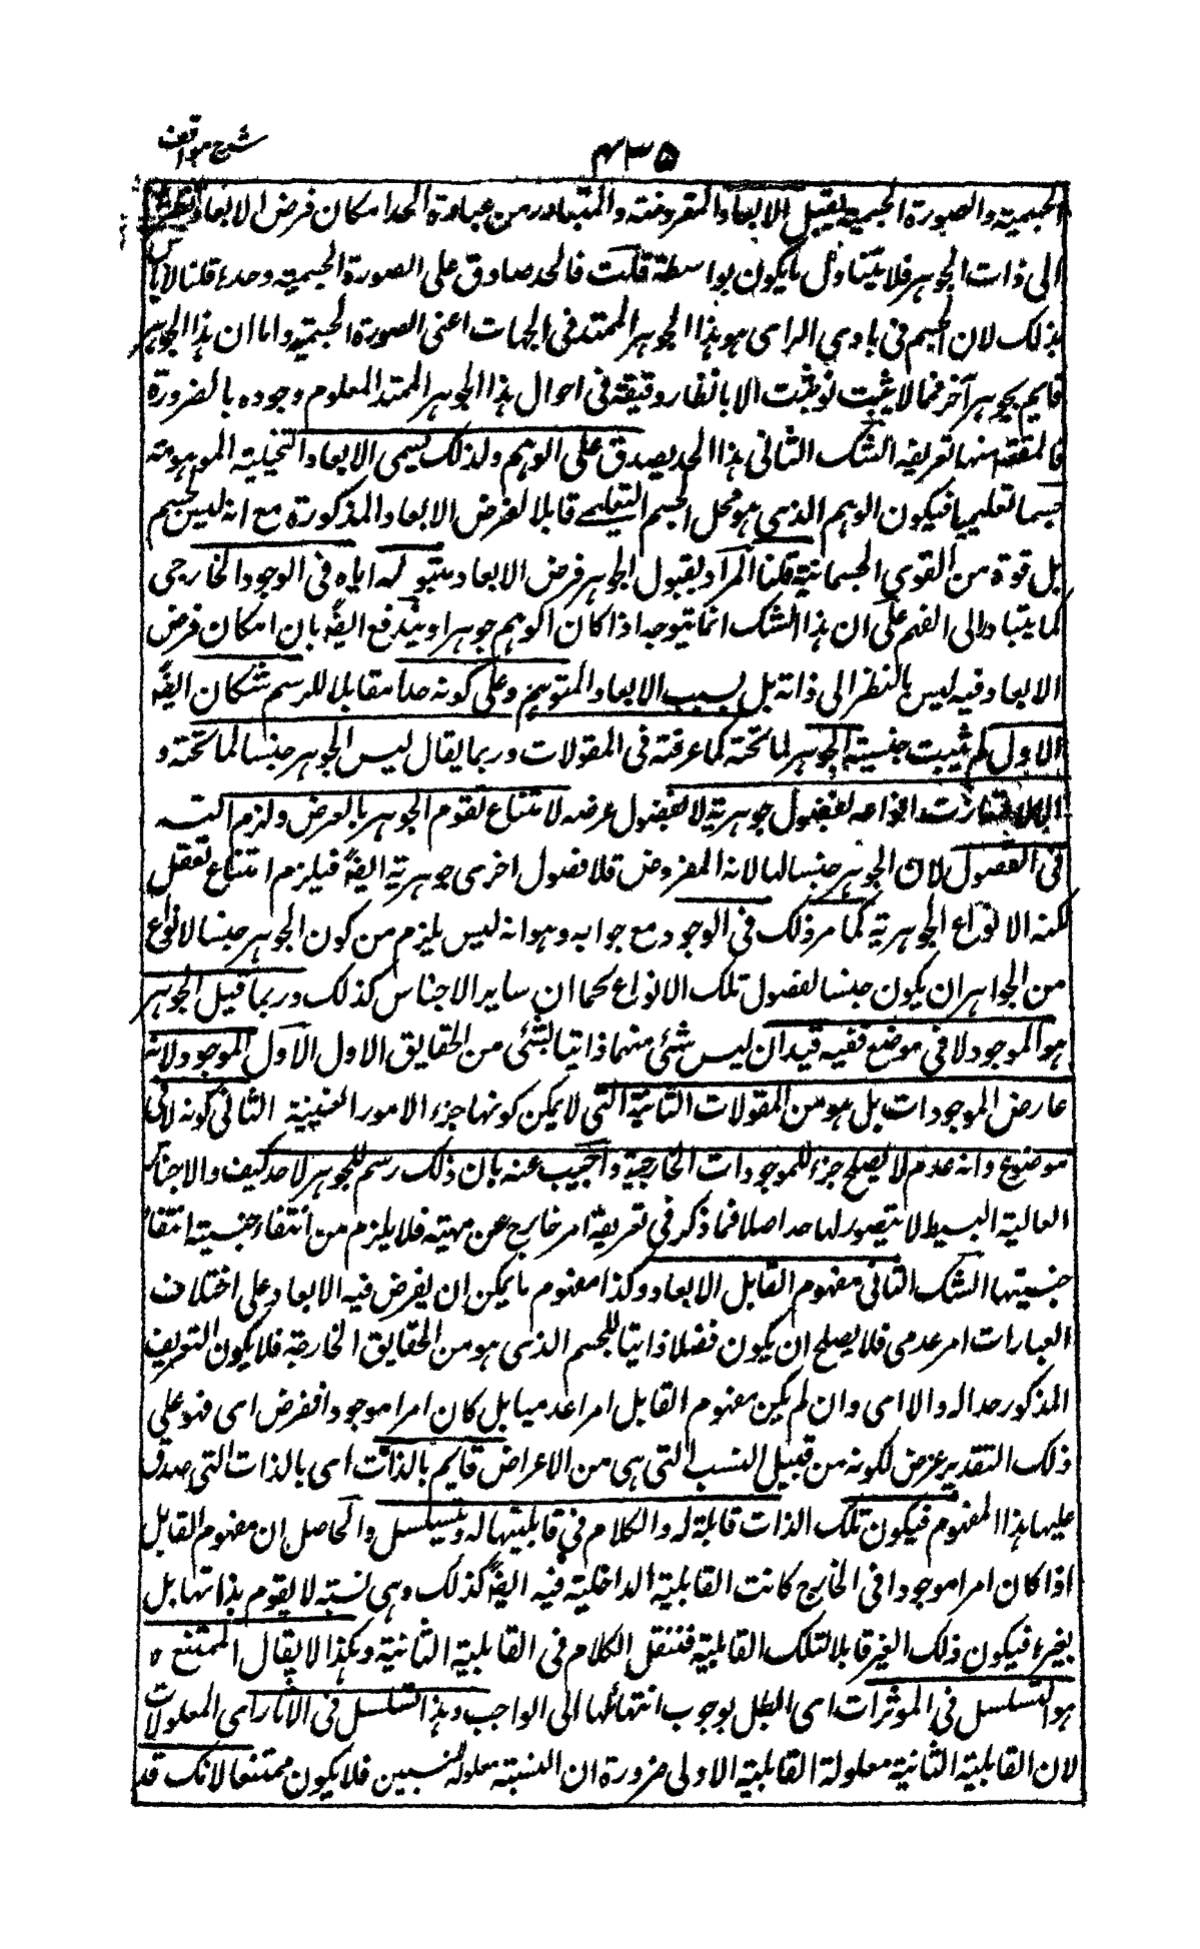 شرح مواقف
۴۳۵
الجسمية والصورة الجسمية يقبل الابعاد المفروضة والمتبادر من عبارة الحد امكان فرض الابعاد نظرا
الى ذات الجوهر فلا يتناول ما يكون بواسطة قلت فالحد صادق على الصورة الجسمية وحدها قلنا لا باس
بذلك لان الجسم في بادي الراى هو هذا الجوهر الممتد في الجهات اعنى الصورة الجسمية واما ان هذا الجوهر
قايم بجوهر آخر فمما لا يثبت لو ثبت الا بانظار دقيقة في احوال هذا الجوهر الممتد المعلوم وجوده بالضرورة
فالمقصود هنا تعريفه الشك الثانى هذا الحد يصدق على الوهم ولذلك يسمى الابعاد التخيلية الموهومة
جسما تعليميا فيكون الوهم الذى هو محل الجسم التعليمے قابلا لفرض الابعاد المذكورة مع انه ليس بجسم
بل قوة من القوى الجسمانية قلنا المراد بقبول الجوهر فرض الابعاد قبوله اياه في الوجود الخارجى
كما يتبادر الى الفهم على ان هذا الشك انما يتوجه اذا كان الوهم جوهرا ويندفع ايضًا بان امكان فرض
الابعاد فيه ليس بالنظر الى ذاته بل بسبب الابعاد المتوهمة وعلى كونه حدا مقابلا للرسم شكان ايضًا
الاول لم يثبت جنسية الجوهر لما تحته كما عرفته في المقولات وربما يقال ليس الجوهر جنسا لما تحته و
الا لامتازت انواعه بفصول جوهرية لا بفصول عرضه لامتناع تقوم الجوهر بالعرض ولزم التسـ
في الفصول لان الجوهر جنسا لها لانه المفروض فلا فصول اخرى جوهرية ايضًا فيلزم امتناع تعقل
كنه الانواع الجوهرية كما مر ذلك في الوجود مع جوابه وهو انه ليس يلزم من كون الجوهر جنسا لانواع
من الجواهر ان يكون جنسا لفصول تلك الانواع كما ان ساير الاجناس كذلك وربما قيل الجوهر
هو الموجود لا في موضع ففيه قيدان ليس شئ منهما ذاتيا لشئ من الحقايق الاول الاول الموجود لانه
عارض الموجودات بل هو من المقولات الثانية التي لا يمكن كونها جزء الامور العينية الثانى كونه لا في
موضوع وانه عدم لا يصلح جزء للموجودات الخارجية واجيب عنه بان ذلك رسم للجوهر لا حد كيف والاجناس
العالية البسيط لا يتصور لها حد اصلا فما ذكر في تعريفه امر خارج عن مهيته فلا يلزم من انتفاء جنسيته انتفاء
جنسيتها الشك الثانى مفهوم القابل الابعاد وكذا مفهوم ما يمكن ان يفرض فيه الابعاد على اختلاف
العبارات امر عدمى فلا يصلح ان يكون فصلا ذاتيا للجسم الذى هو من الحقايق الخارجة فلا يكون التعريف
المذكور حدا له والا اى وان لم يكن مفهوم القابل امرا عدميا بل كان امرا موجودا فعرض اى فهو على
ذلك التقدير عرض لكونه من قبيل النسب التى هى من الاعراض قايم بالذات اى بالذات التى صدق
عليها هذا المفهوم فيكون تلك الذات قابلة له والكلام في قابليتها له ويتسلسل والحاصل ان مفهوم القابل
اذا كان امرا موجودا في الخارج كانت القابلية الداخلية فيه ايضًا كذلك وهى نسبة لا يقوم بذاتها بل
بغيره فيكون ذلك الغير قابلا لتلك القابلية فننقل الكلام في القابلية الثانية وهكذا لا يقال الممتنع ه
هو التسلسل في الموثرات اى العلل بوجوب انتهائها الى الواجب وهذا التسلسل في الآثار اى المعلولات
لان القابلية الثانية معلولة القابلية الاولى ضرورة ان النسبة معلولة للنسبين فلا يكون ممتنعا لانك قد